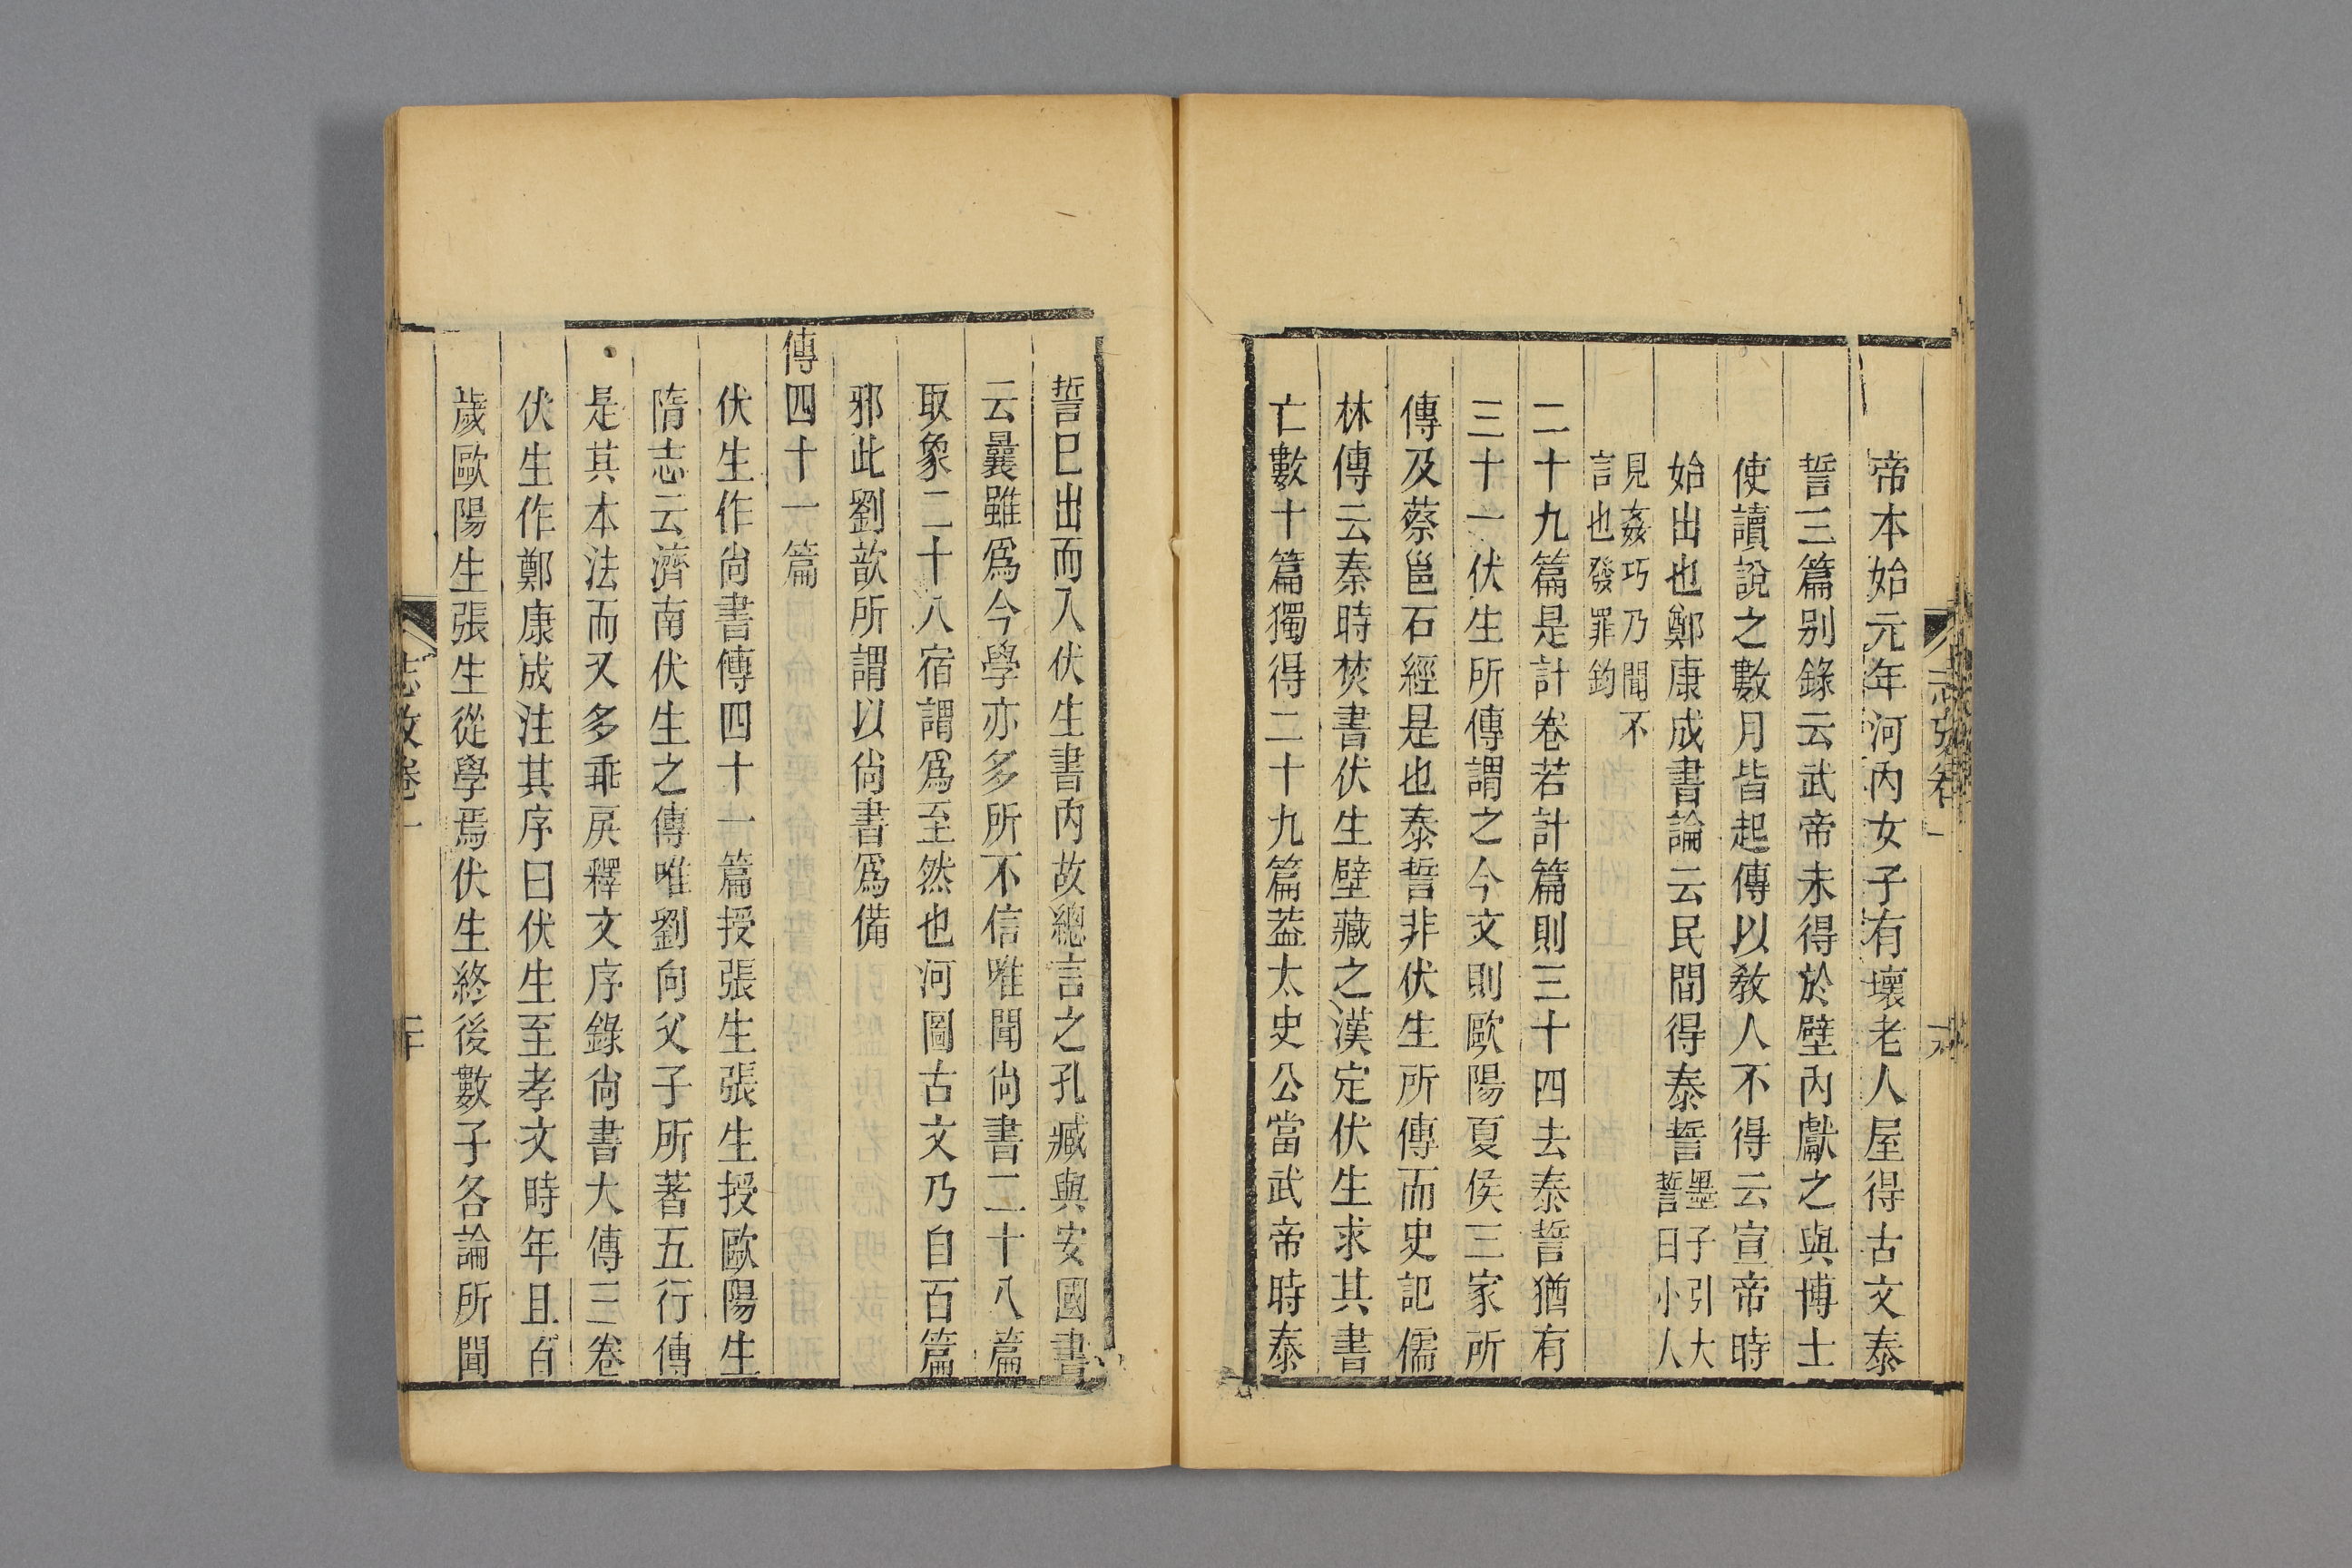 志攷卷一
帝本始元年河內女子有壞老人屋得古文泰
誓三篇別錄云武帝未得於壁內獻之與博士
使讀說之數月皆起傳以敎人不得云宣帝時
始出也鄭康成書論云民間得泰誓墨子引大誓曰小人
見姦巧乃聞不言也發罪鈞
二十九篇是計卷若計篇則三十四去泰誓猶有
三十一伏生所傳謂之今文則歐陽夏侯三家所
傳及蔡邕石經是也泰誓非伏生所傳而史記儒
林傳云秦時焚書伏生壁藏之漢定伏生求其書
亡數十篇獨得二十九篇葢太史公當武帝時泰
誓已出而入伏生書內故總言之孔臧與安國書
云曩雖爲今學亦多所不信唯聞尙書二十八篇
取象二十八宿謂爲至然也河圖古文乃自百篇
邪此劉歆所謂以尙書爲備
傳四十一篇
伏生作尙書傳四十一篇授張生張生授歐陽生
隋志云濟南伏生之傳唯劉向父子所著五行傳
是其本法而又多乖戾釋文序錄尙書大傳三卷
伏生作鄭康成注其序曰伏生至孝文時年且百
歲歐陽生張生從學焉伏生終後數子各論所聞
志攷卷一